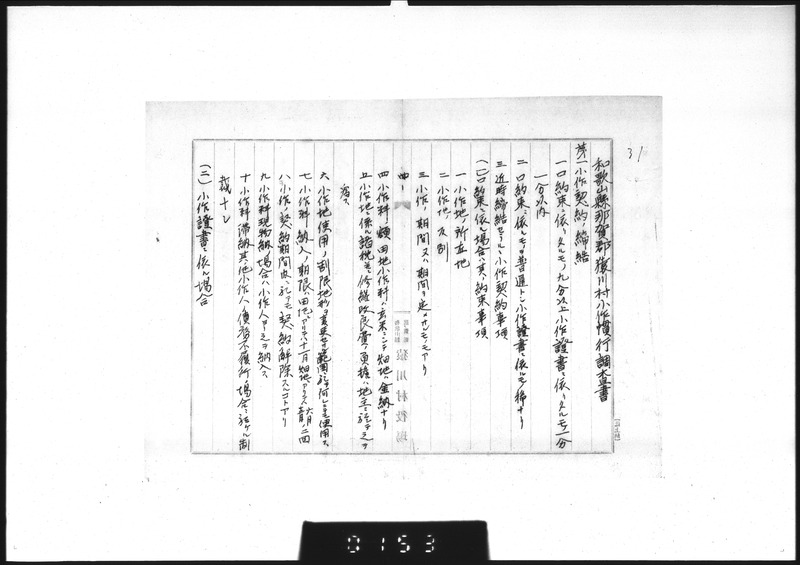 31
和歌山縣那賀郡猿川村小作慣行調査書
第一小作契約ノ締結
一口約束ニ依リタルモノ九分以上小作證書ニ依リタルモノ一分
一分以内
二口約束ニ依ルモノヲ普通トシ小作證書ニ依ルモノ稀ナリ
三近時締結セラルヽ小作契約事項
(一)口約束ニ依ル場合ハ其ノ約束事項
一小作地ノ所在地
二小作地ノ反別
三小作ノ期間又ハ期間ヲ定メサルモノモアリ
四小作料ノ額田地小作料ハ玄米ニシテ畑地ハ金納ナリ
五小作地ニ係ル諸税並ニ修繕改良費ノ負擔ハ地主ニ於テ之ヲ
為ス
六小作地使用ノ制限地形ヲ変更セサル範囲ニ於テ何レニモ使用ス
七小作料納入ノ期限田地ニアリテハ十二月畑地ニアリテハ
八小作契約期間内ト雖モ契約解除スルコトアリ
九小作料現物納ノ場合ハ小作人ヨリ之ヲ納入ス
十小作料滞納其ノ他小作人ノ債務不履行ノ場合ニ於ケル制
裁ナシ
(二)小作證書ニ依ル場合
猿川村役場
0153